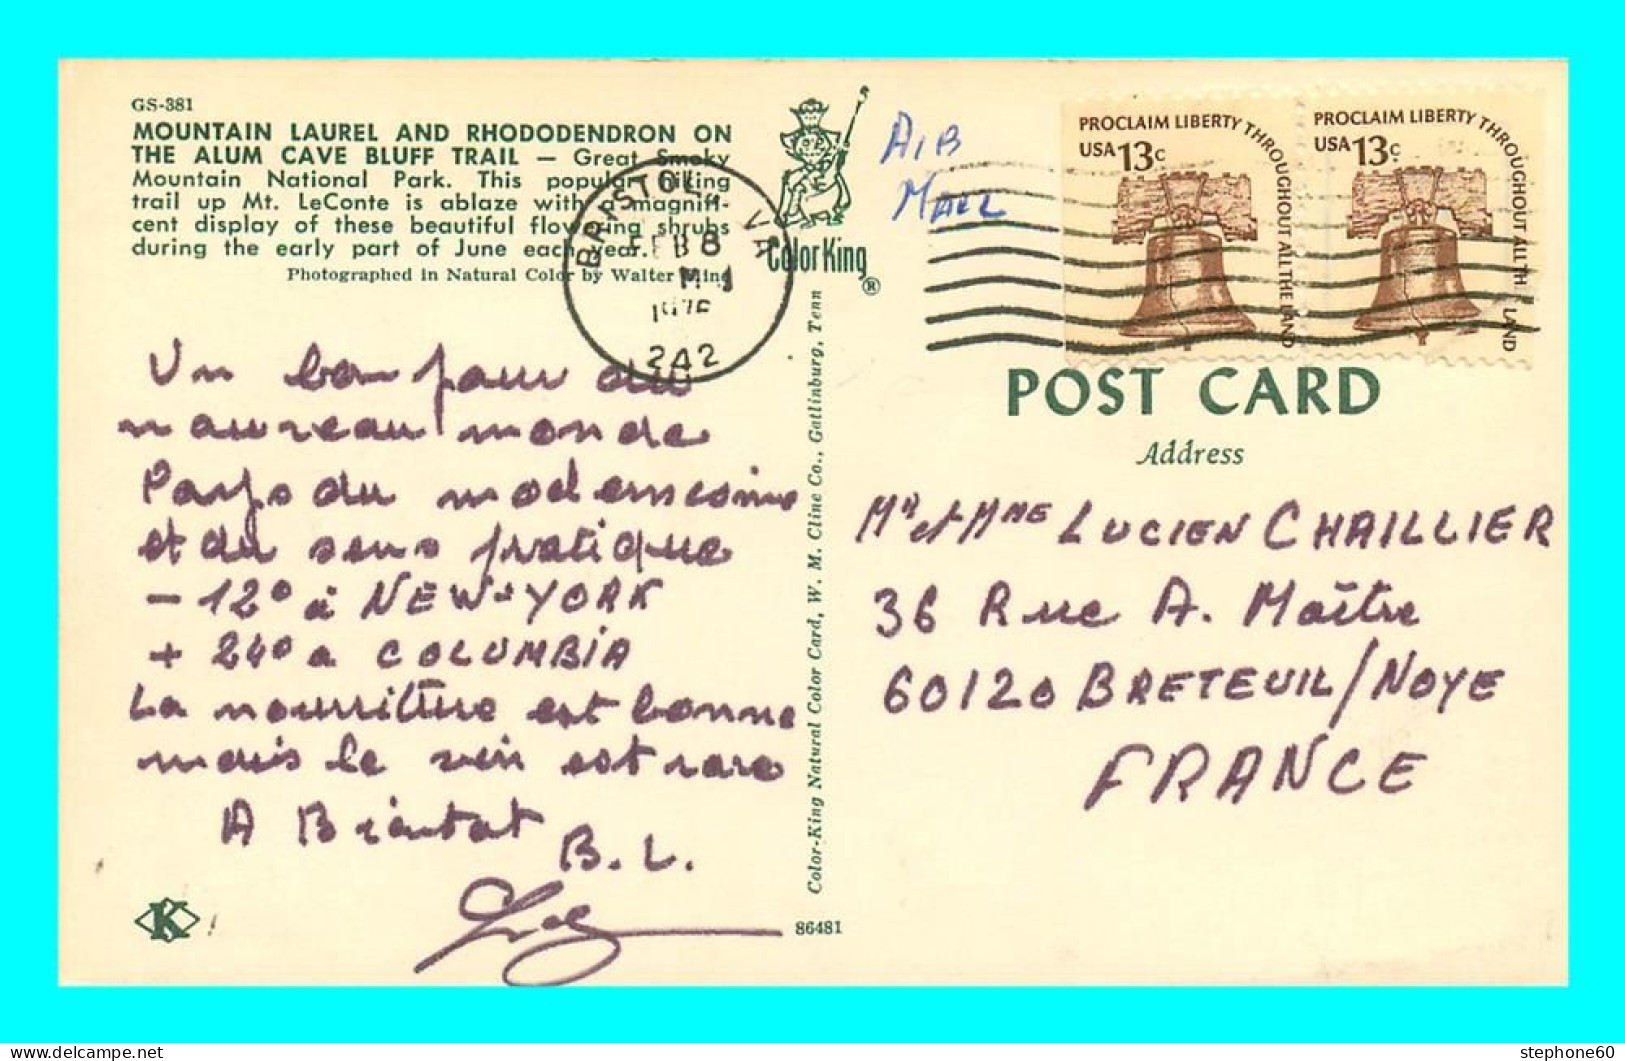 GS-381
MOUNTAIN LAUREL AND RHODODENDRON ON
THE ALUM CAVE BLUFF TRAIL — Great Smoky
Mountain National Park. This popular hiking
trail up Mt. LeConte is ablaze with a magnifi-
cent display of these beautiful flowering shrubs
during the early part of June each year.
Photographed in Natural Color by Walter Cline
BRISTOL, VA
FEB 8
242
Color King
®
AIR
MAIL
PROCLAIM LIBERTY THROUGHOUT ALL THE LAND
USA 13c
PROCLAIM LIBERTY THROUGHOUT ALL TH LAND
USA 13c
POST CARD
Address
Un bonjour du
nouveau monde
Pays du modernisme
et du sens pratique
- 12° à NEW-YORK
+ 24° a COLUMBIA
La nourriture est bonne
mais le vin est rare
A Bientot
B. L.
Color-King Natural Color Card, W. M. Cline Co., Gatlinburg, Tenn
Mr et Mme LUCIEN CHAILLIER
36 Rue A. Maître
60120 BRETEUIL/NOYE
FRANCE
K
86481
stephone60